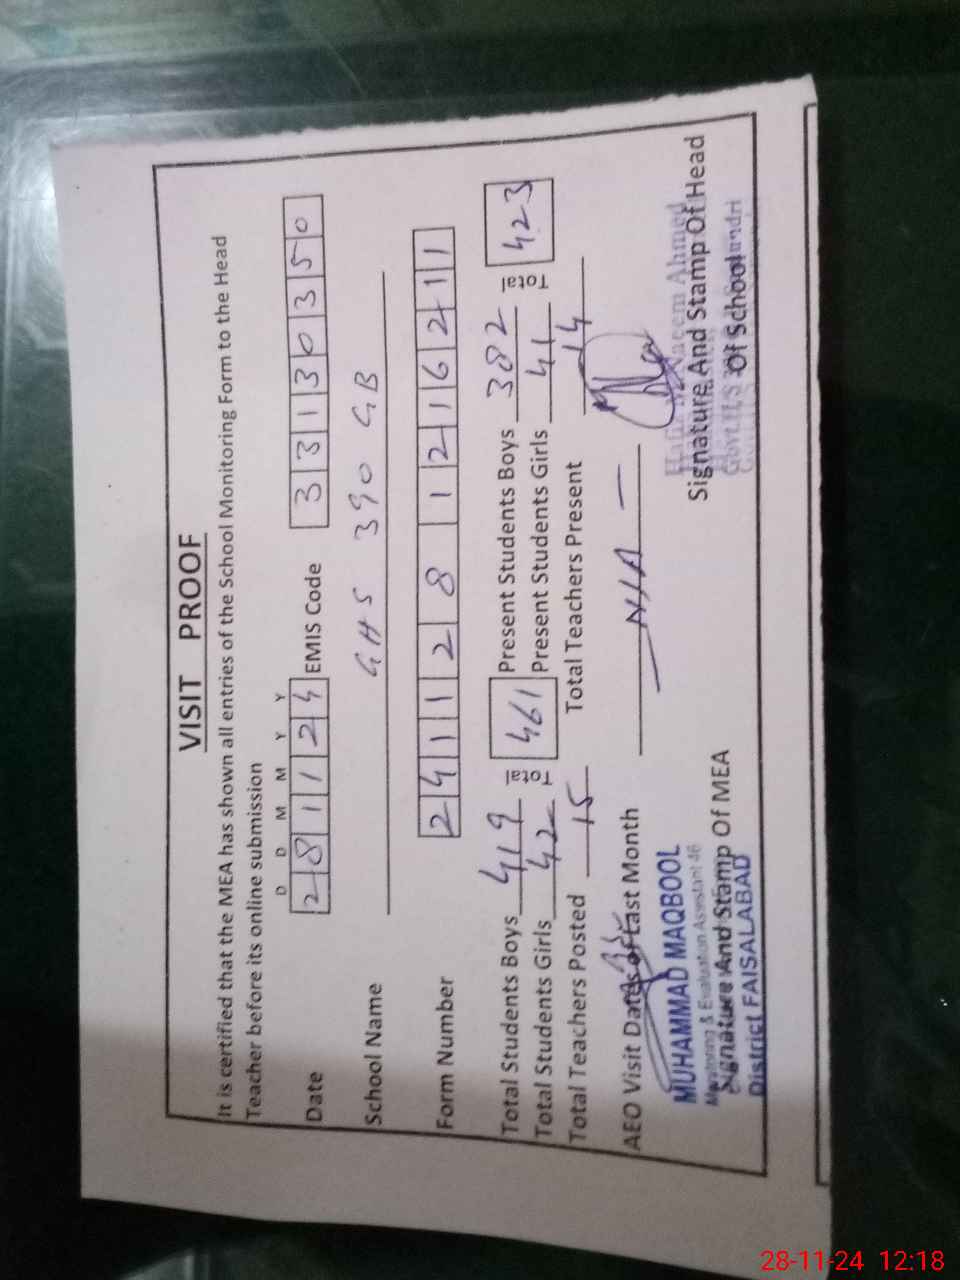 VISIT PROOF
It is certified that the MEA has shown all entries of the School Monitoring Form to the Head
Teacher before its online submission
D D M M Y Y
Date 281124 EMIS Code 33130350
School Name GHS 390 GB
Form Number 2411281216211
Total Students Boys 419 Total 461 Present Students Boys 382 Total 423
Total Students Girls 42 Present Students Girls 41
Total Teachers Posted 15 Total Teachers Present 14
AEO Visit Dates of Last Month N/A
MUHAMMAD MAQBOOL
Monitoring & Evaluation Assistant 46
Signature And Stamp Of MEA
District FAISALABAD
Naeem Ahmed
Signature And Stamp Of Head
Of School
28-11-24 12:18